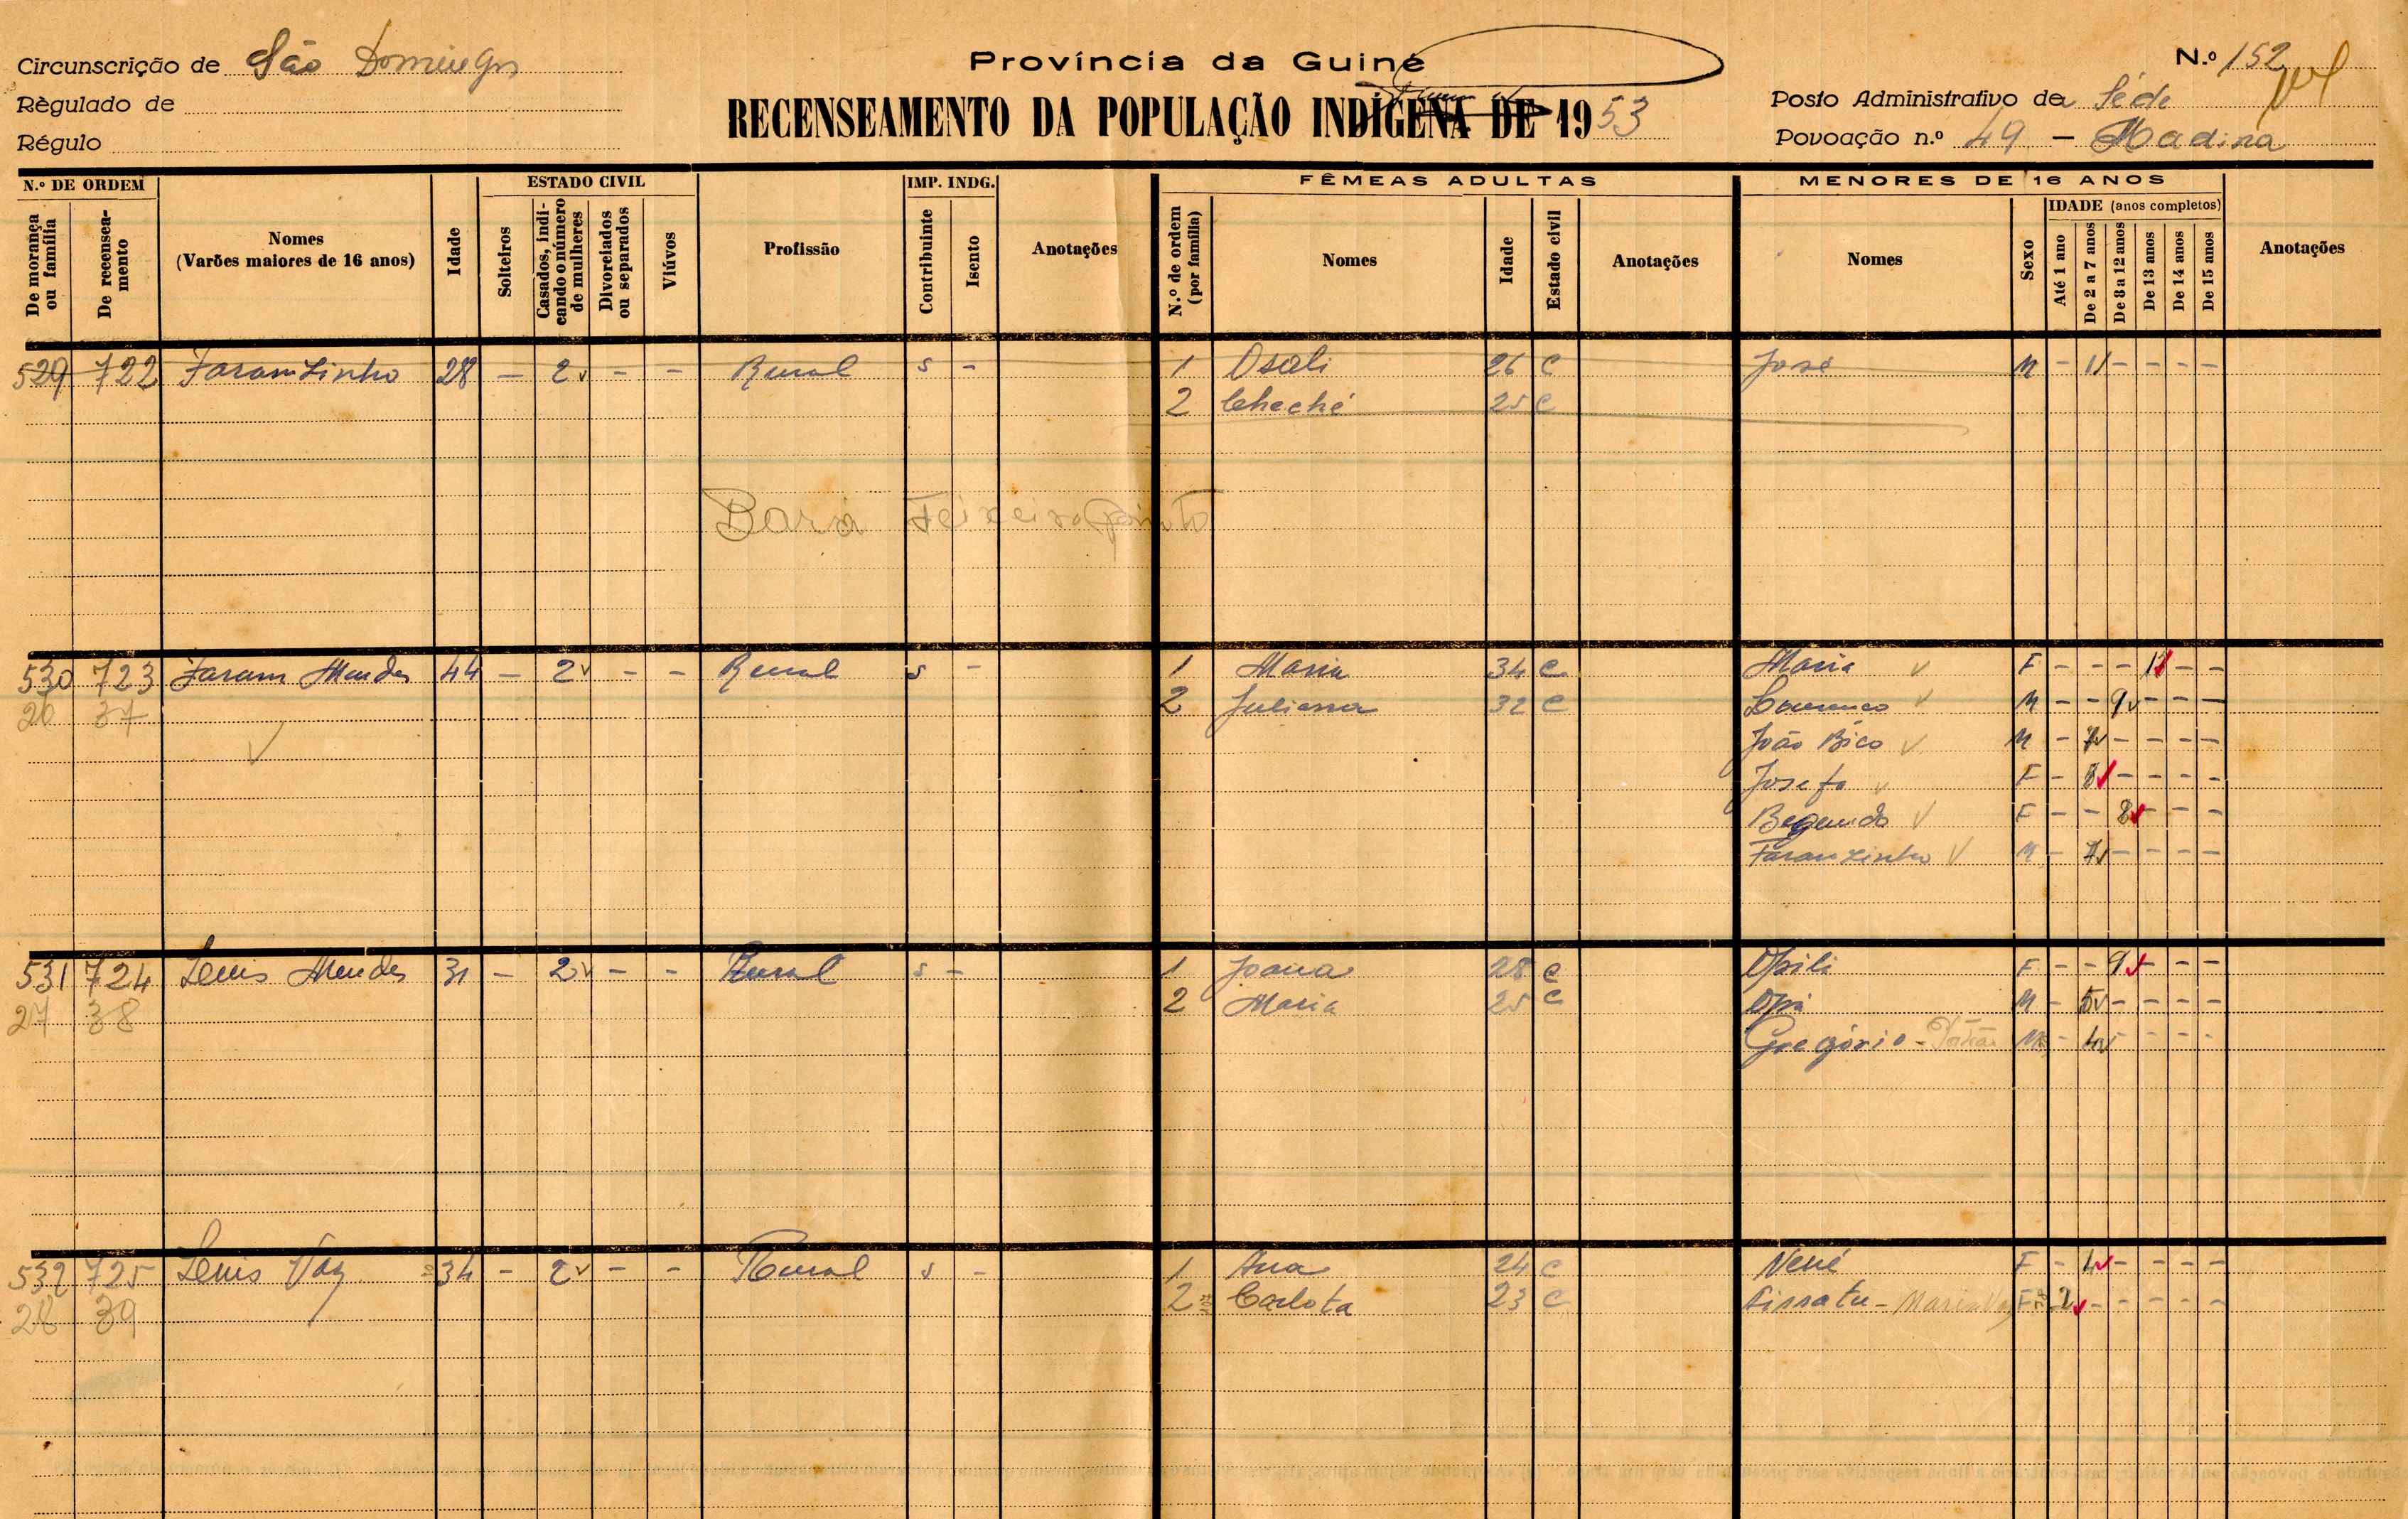 Circunscrição de São Domingos
Règulado de
Régulo
Província da Guiné
RECENSEAMENTO DA POPULAÇÃO INDÍGENA DE 1953
N.º 152
Posto Administrativo da Séde
Povoação n.º 49 — Madina
N.º DE ORDEM
De morança ou família
De recensea-mento
Nomes
(Varões maiores de 16 anos)
Idade
ESTADO CIVIL
Solteiros
Casados, indi-cando o número de mulheres
Divorciados ou separados
Viúvos
Profissão
IMP. INDG.
Contribuinte
Isento
Anotações
FÊMEAS ADULTAS
N.º de ordem (por família)
Nomes
Idade
Estado civil
Anotações
MENORES DE 16 ANOS
Nomes
Sexo
IDADE (anos completos)
Até 1 ano
De 2 a 7 anos
De 8 a 12 anos
De 13 anos
De 14 anos
De 15 anos
Anotações
529 722 Faramzinho 28 — 2 ✓ — — Rural s — 1 Osali 26 C José M —
2 Cheché 25 C
Teixeira Pinto
530 723 Faram Mendes 44 — 2 ✓ — — Rural s — 1 Maria 34 C Maria ✓ F — — — 13 ✓ — —
20 37 2 Juliana 32 C Lourenço ✓ M — — 9 ✓ — — —
✓ João Bico ✓ M — 7 ✓ — — — —
Josefa ✓ F — ✓ — — — —
✓ F — — 8 ✓ — — —
Faramzinho ✓ M — 7 ✓ — — — —
531 724 Lenis Mendes 31 — 2 ✓ — — Rural s — 1 Joana 28 C Opili F — — 9 ✓ — — —
27 38 2 Maria 25 C M — 5 ✓ — — — —
Gregório - M — 4 ✓ — — — —
532 725 Lenis Vaz 34 — 2 ✓ — — Rural s — 1 Ana 24 C Nené F — 4 ✓ — — — —
28 39 2 Carlota 23 C Sirratu - Maria Vaz F 2 ✓ — — — — —